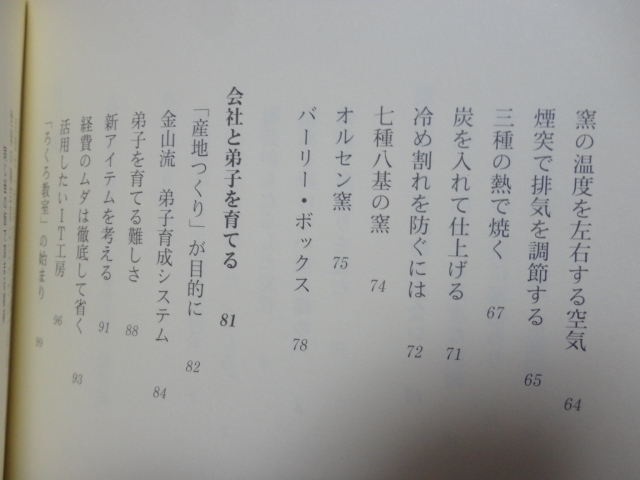 窯の温度を左右する空気 64
煙突で排気を調節する 65
三種の熱で焼く 67
炭を入れて仕上げる 71
冷め割れを防ぐには 72
七種八基の窯 74
オルセン窯 75
バーリー・ボックス 78
会社と弟子を育てる 81
「産地つくり」が目的に 82
金山流 弟子育成システム 84
弟子を育てる難しさ 88
新アイテムを考える 91
経費のムダは徹底して省く 93
活用したいIT工房 96
「ろくろ教室」の始まり 99